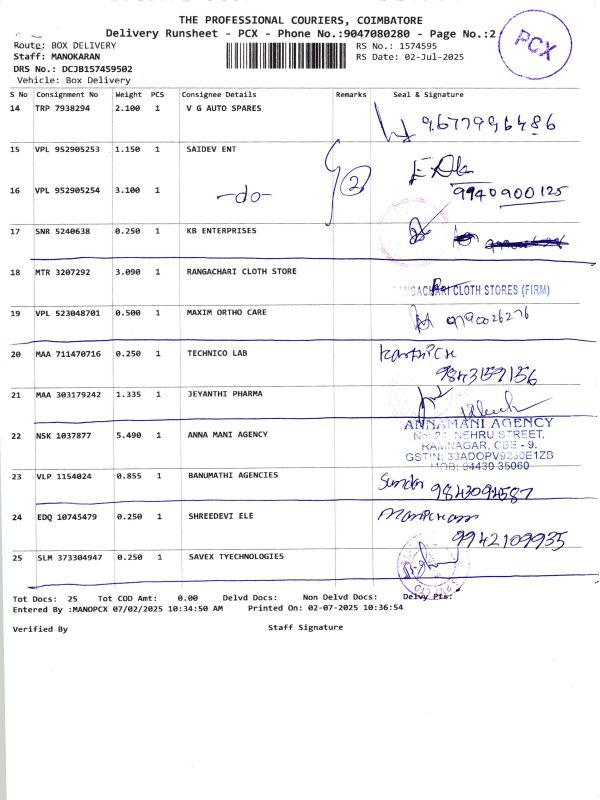 THE PROFESSIONAL COURIERS, COIMBATORE
Delivery Runsheet - PCX - Phone No.:9047080280 - Page No.:2
PCX
Route: BOX DELIVERY RS No.: 1574595
Staff: MANOKARAN RS Date: 02-Jul-2025
DRS No.: DCJB157459502
Vehicle: Box Delivery
S No Consignment No Weight PCS Consignee Details Remarks Seal & Signature
14 TRP 7938294 2.100 1 V G AUTO SPARES 9677996486
15 VPL 952905253 1.150 1 SAIDEV ENT
16 VPL 952905254 3.100 1 -do- 2 9940900125
17 SNR 5240638 0.250 1 KB ENTERPRISES
18 MTR 3207292 3.090 1 RANGACHARI CLOTH STORE
CLOTH STORES (FIRM)
19 VPL 523048701 0.500 1 MAXIM ORTHO CARE 9790026276
20 MAA 711470716 0.250 1 TECHNICO LAB
9843159156
21 MAA 303179242 1.335 1 JEYANTHI PHARMA
ANNAMANI AGENCY
22 NSK 1037877 5.490 1 ANNA MANI AGENCY
NEHRU STREET,
RAMNAGAR, CBE - 9.
GSTIN: 33ADOPV9230E1ZB
MOB: 94430 35060
23 VLP 1154024 0.855 1 BANUMATHI AGENCIES
9843094587
24 EDQ 10745479 0.250 1 SHREEDEVI ELE
9942109935
25 SLM 373304947 0.250 1 SAVEX TYECHNOLOGIES
Tot Docs: 25 Tot COD Amt: 0.00 Delvd Docs: Non Delvd Docs: Delvy Pts:
Entered By :MANOPCX 07/02/2025 10:34:50 AM Printed On: 02-07-2025 10:36:54
Verified By Staff Signature